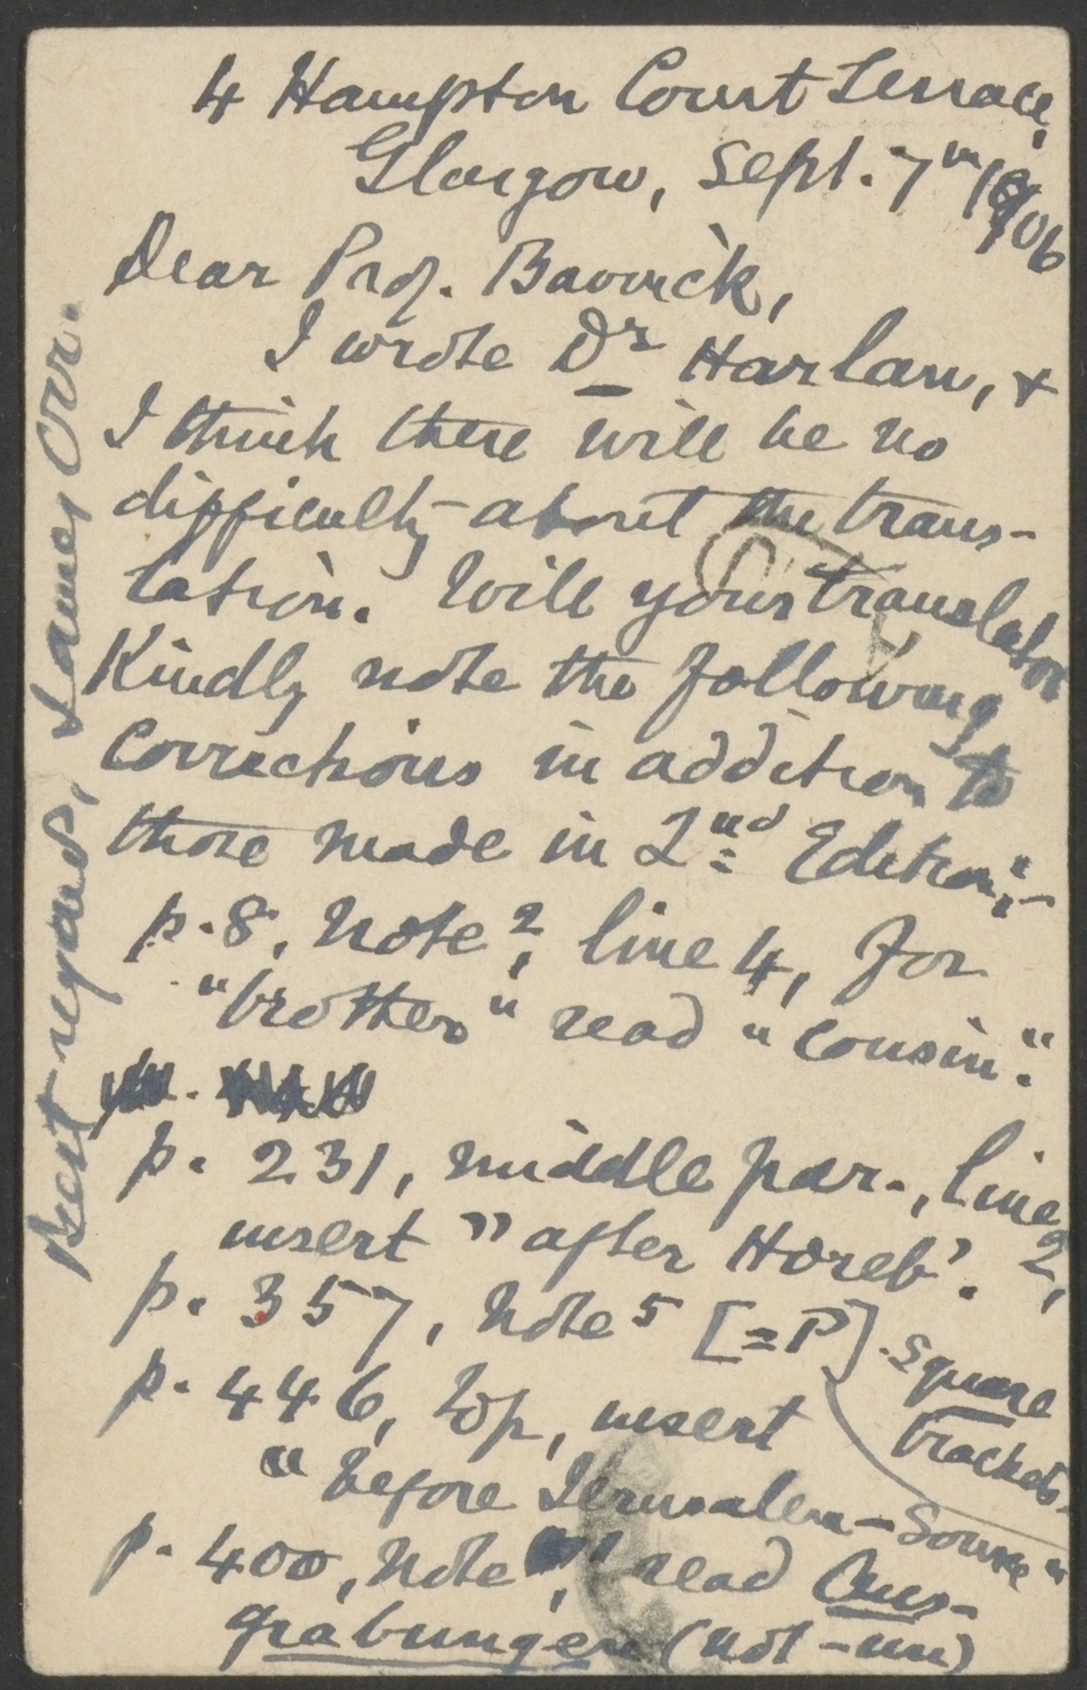 4 Hampton Court Terrace,
Glasgow, Sept. 7th 1906
Dear Prof. Bavinck,
I wrote Dr Harlan, &
I think there will be no
difficulty about the trans-
lation. Will your translator
Kindly note the following
corrections in addition to
those made in 2nd Edition:-
p. 8, Note 2, line 4, for
"brother" read "cousin".
p. 231, middle par., line 2,
insert " after Horeb'.
p. 357, Note 5 [=P] square
brackets.
p. 446, top, insert
" before Jerusalem-Source"
p. 400, Note 1, read Aus-
grabungen (not -un)
Best regards, James Orr.